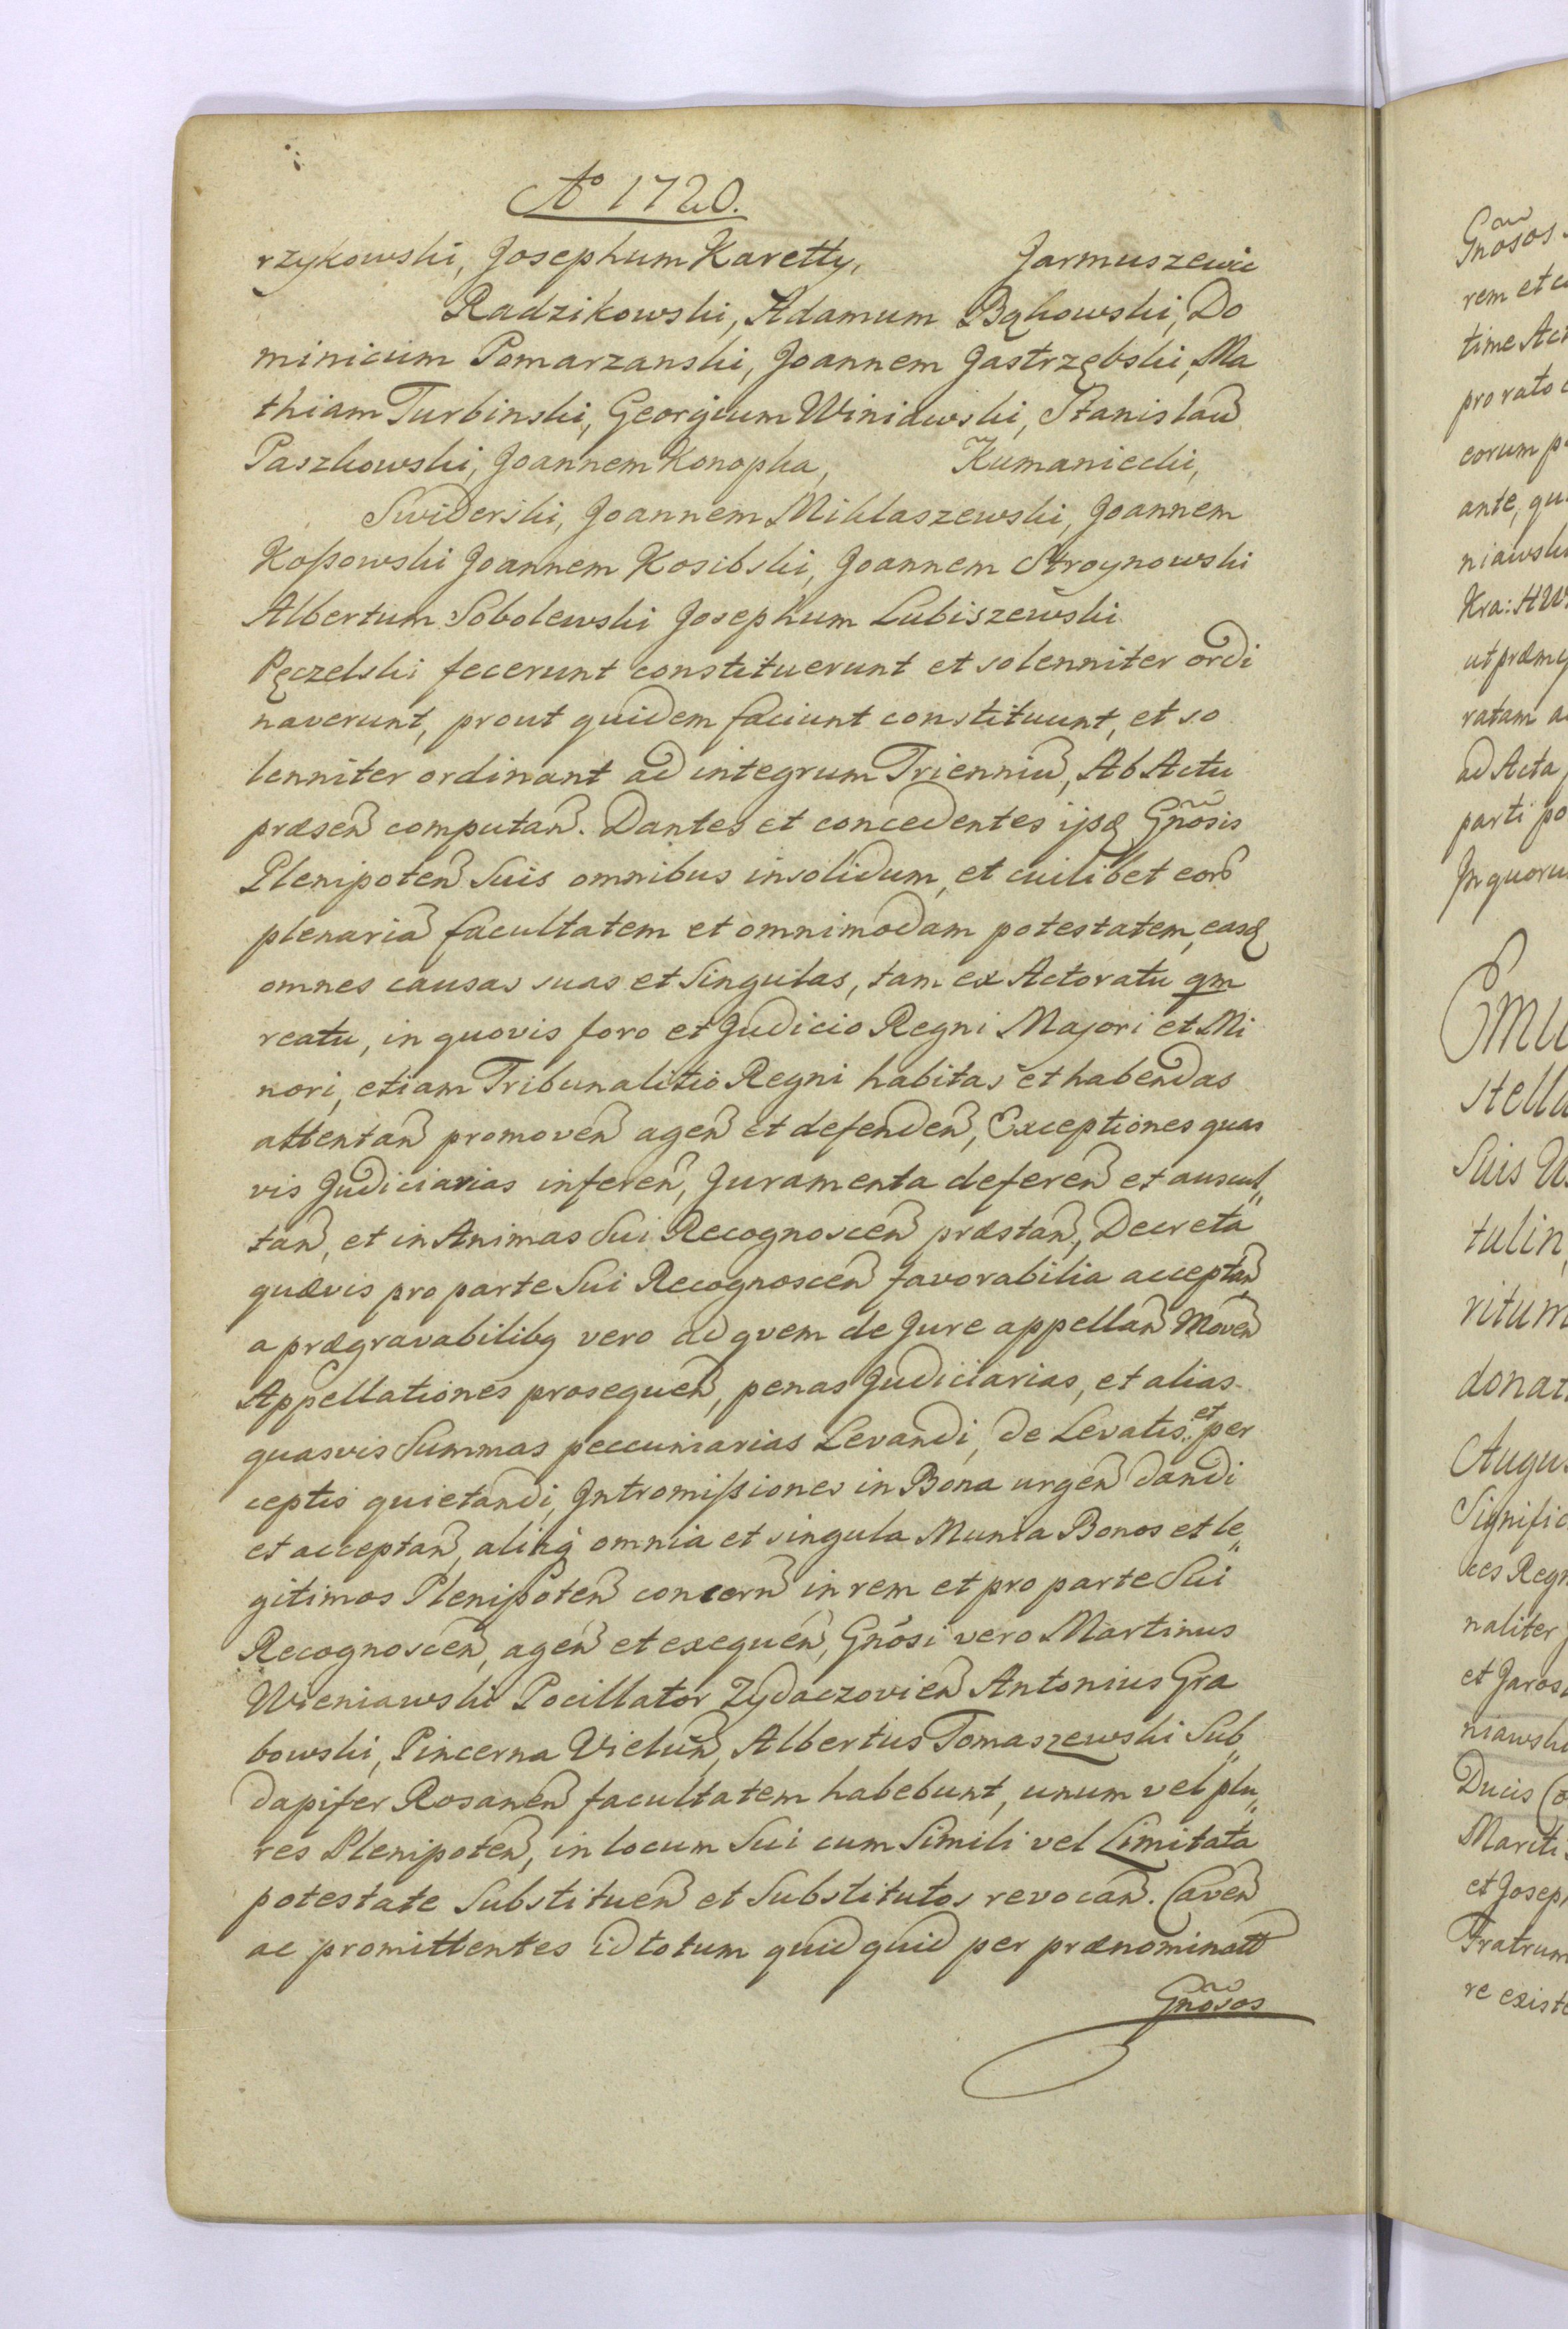 Ao 1720.
rzykowski, Josephum Karetty, Jarmuszewic
Radzikowski, Adamum Bąkowski, Do
minicum Pomarzanski, Joannem Jastrzębski, Ma
thiam Turbinski, Georgium Winiawski, Stanislaū
Paszkowski, Joannem Konopka, Kumaniecki,
Swiderski, Joannem Miklaszewski, Joannem
Koßowski Joannem Kosibski, Joannem Stroynowski
Albertum Sobolewski Josephum Lubiszewski
Pęczelski fecerunt constituerunt et solenniter ordi
naverunt, prout quidem faciunt constituunt, et so
lenniter ordinant ad integrum Trienniū, Ab Actu
præseñ computañ. Dantes et concedentes ijsq Gnõsis
Plenipoteñ Suis omnibus insolidum, et cuilibet eorū
plenariā facultatem et omnimodam potestatem, easq
omnes causas suas et Singulas, tam ex Actoratu qm
reatu, in quovis foro et Judicio Regni Majori et Mi
nori, etiam Tribunalitio Regni habitas et habendas
attentañ promoveñ ageñ et defendeñ, Exceptiones quas
vis Judiciarias infereñ, Juramenta defereñ et auscul„
tañ, et in Animas Sui Recognosceñ præstañ, Decreta
quævis pro parte Sui Recognosceñ favorabilia acceptañ,
a prægravabilibq vero ad quem de Jure appellañ Moveñ
Appellationes prosequeñ, penas Judiciarias, et alias
quasvis Summas peccuniarias Levandi, de Levatis et per
ceptis quietandi, Intromißiones in Bona urgeñ dandi
et acceptañ, aliaq omnia et singula Munia Bonos et le„
gitimos Plenipoteñ concerñ in rem et pro parte Sui
Recognosceñ, ageñ et exequeñ, Gnõsi vero Martinus
Wieniawski Pocillator Zydaczovieñ Antonius Gra
bowski, Pincerna Vieluñ, Albertus Tomaszewski Sub„
dapifer Rosaneñ facultatem habebunt, unum vel plu„
res Plenipoteñ, in locum Sui cum Simili vel Limitata
potestate Substitueñ et Substitutos revocañ. Caveñ
ac promittentes id totum quid quid per prænominatt
Gnõsos
Gnõsos
rem et c
time Act
pro rato
eorum p
ante, qu
niawski
Kra:
ut præmi
ratam a
ad Acta
parti po
In quoru
stella
Suis
tulin
ritum
donat
Augus
Signific
ces Reg
naliter
et Jaros
niawski
Ducis
Mariti
et Josep
Fratrum
re existe